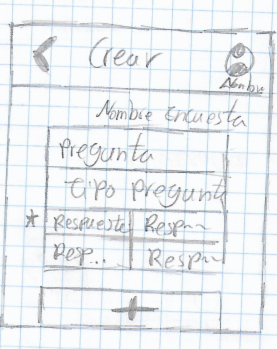 Crear
Nombre
Nombre Encuesta
Pregunta
tipo pregunta
* Respuesta Resp~~
Resp... Resp~~
+